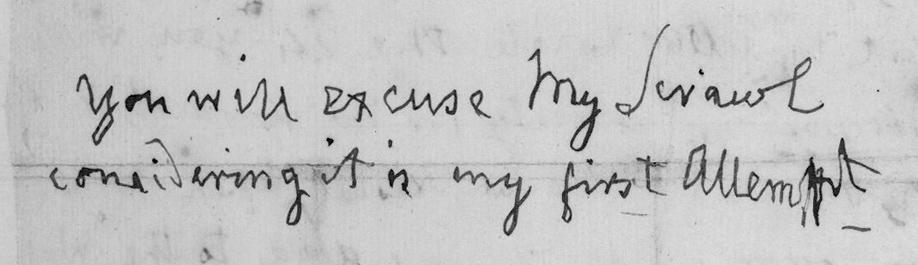 You will excuse My Scrawl
considering it is my first Attempt